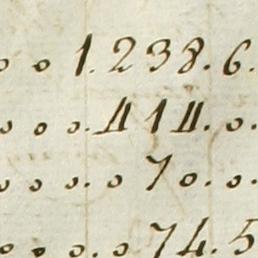 o o 1.238.6.
o o o. 414. o.
o o o. o 70. o.
o o o. o 74.5